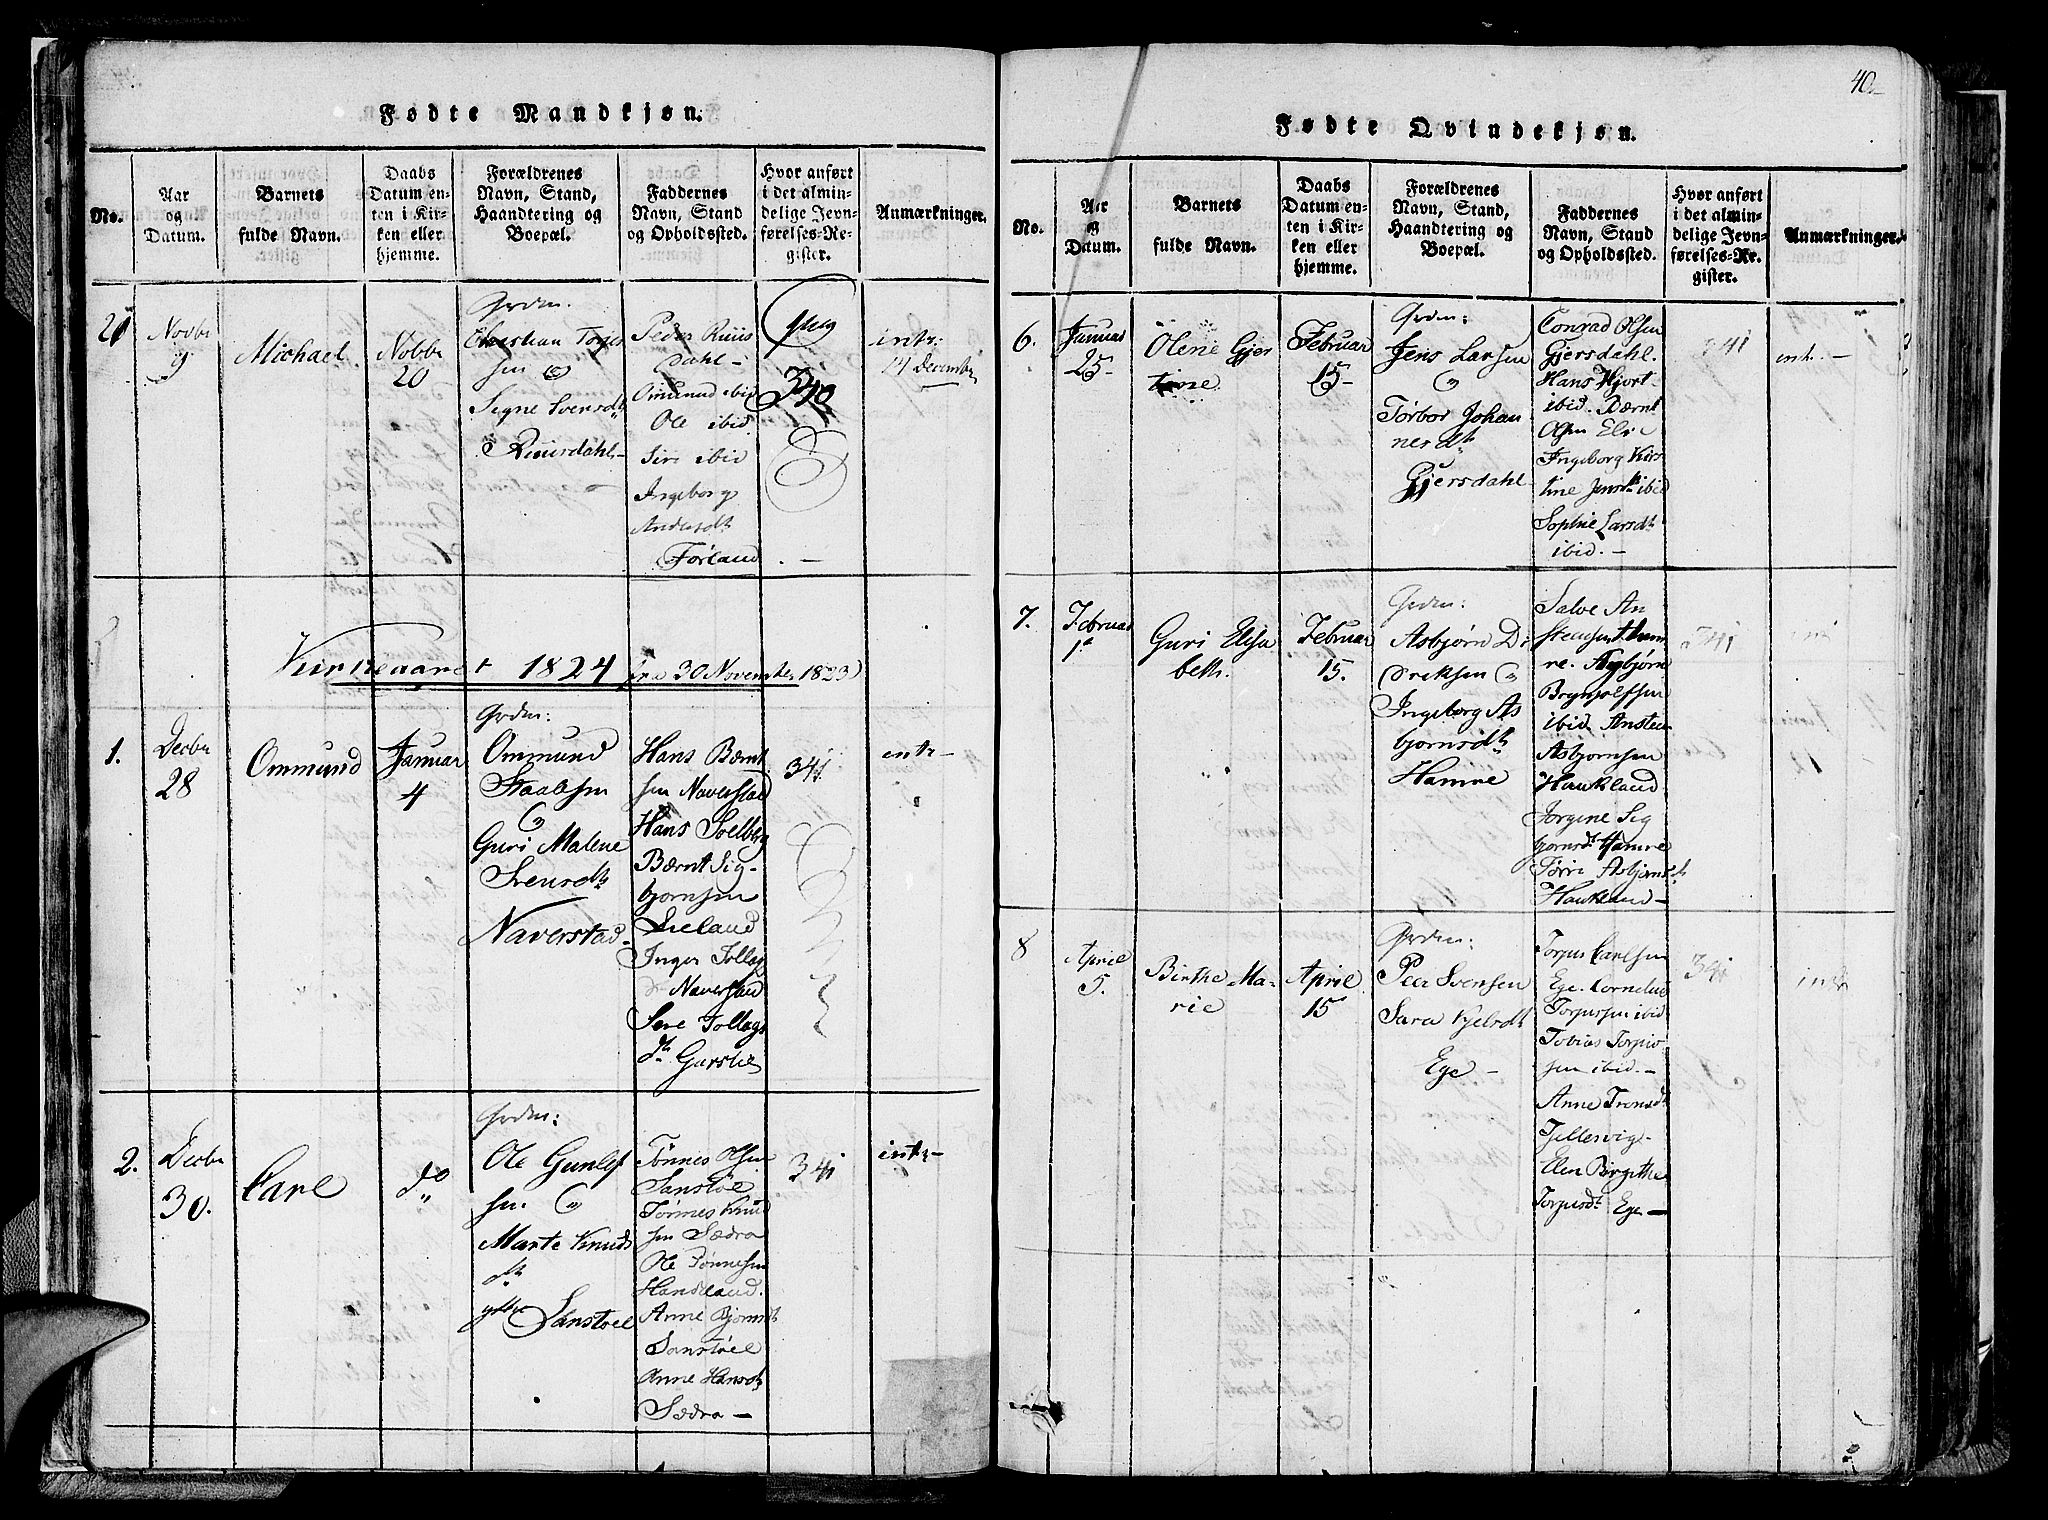 Fødte Mandkjøn.
No.
Aar
og
Datum.
Barnets
fulde Navn.
Daabs
Datum en-
ten i Kir-
ken eller
hjemme.
Forældrenes
Navn, Stand,
Haandtering og
Boepæl.
Faddernes
Navn, Stand
og Opholdssted.
Hvor anført
i det almin-
delige Jevn-
førelses-Re-
gister.
Anmærkninger.
21
Novbr
9
Michael
Novbr
20
Grdm.
Christian Torjes
sen &
Signe Svensdtr
Ruusdahl
Peder Ruus
dahl
Omund ibid
Ole ibid
Siri ibid
Ingeborg
Andersdtr
Førland
340
intr:
14 December
Kirkeaaret 1824 fra 30 November 1823)
1.
Decbr
28
Ommund
Januar
4
Grdm:
Ommund
Staalesen
&
Guri Malene
Svensdtr
Naverstad
Hans Bærnt
sen Naverstad
Hans Soelberg
Bærnt Sig-
bjørnsen
Lieland
Inger Tollags
Naverstad
Sere Tollags
dtr
341
intr
2.
Decbr
30.
Carl
do
Grdm:
Ole Gunlef
sen &
Marte Knuds
dtr
Sanstøel
Tønnes Olsen
Sanstøe
Tønnes Knud
sen Sædra
Ole Tønnesen
Handeland.
Anne Bjørnsdtr
Sanstøel
Anne Hansdtr
Sædra
341
intr
40
Fødte Qvindekjøn.
No.
Aar
og
Datum.
Barnets
fulde Navn.
Daabs
Datum en-
ten i Kir-
ken eller
hjemme.
Forældrenes
Navn, Stand,
Haandtering og
Boepæl.
Faddernes
Navn, Stand
og Opholdssted.
Hvor anført
i det almin-
delige Jevn-
førelses-Re-
gister.
Anmærkninger.
6.
Januar
25
Olene Gjer
tine
Februar
15
Grdm:
Jens Larsen
&
Torbor Johan
nesdtr
Gjersdahl
Conrad Olsen
Gjersdahl.
Hans Hjort
ibid. Bærnt
Olsen Elie
Ingeborg Kirs
tine Jensdtr ibid
Sophie Larsdtr
ibid.
341
intr.
7.
Februar
1
Guri Elisa
beth.
Februar
15.
Grdm:
Asbjørn Di
driksen &
Ingeborg As
bjørnsdtr
Hamre
Salve An
stensen Ham
re. Asbjørn
Brynjolfsen
ibid. Ansten
Asbjørnsen
Haukland
Jorgine Sig
bjørnsdtr Hamre
Torri Asbjørnsdtr
Haukland
341
intr
8
April
5.
Birthe Ma-
rie
April
15
Grdm:
Peer Svensen
Sara Kjelsdtr
Ege
Torjus Carlsen
Ege. Cornelius
Torjussen ibid
Tobias Torjus
sen ibid.
Anne Tronsdtr
Tjellesvig
Elen Birgithe
Torjusdtr Ege
341
intr